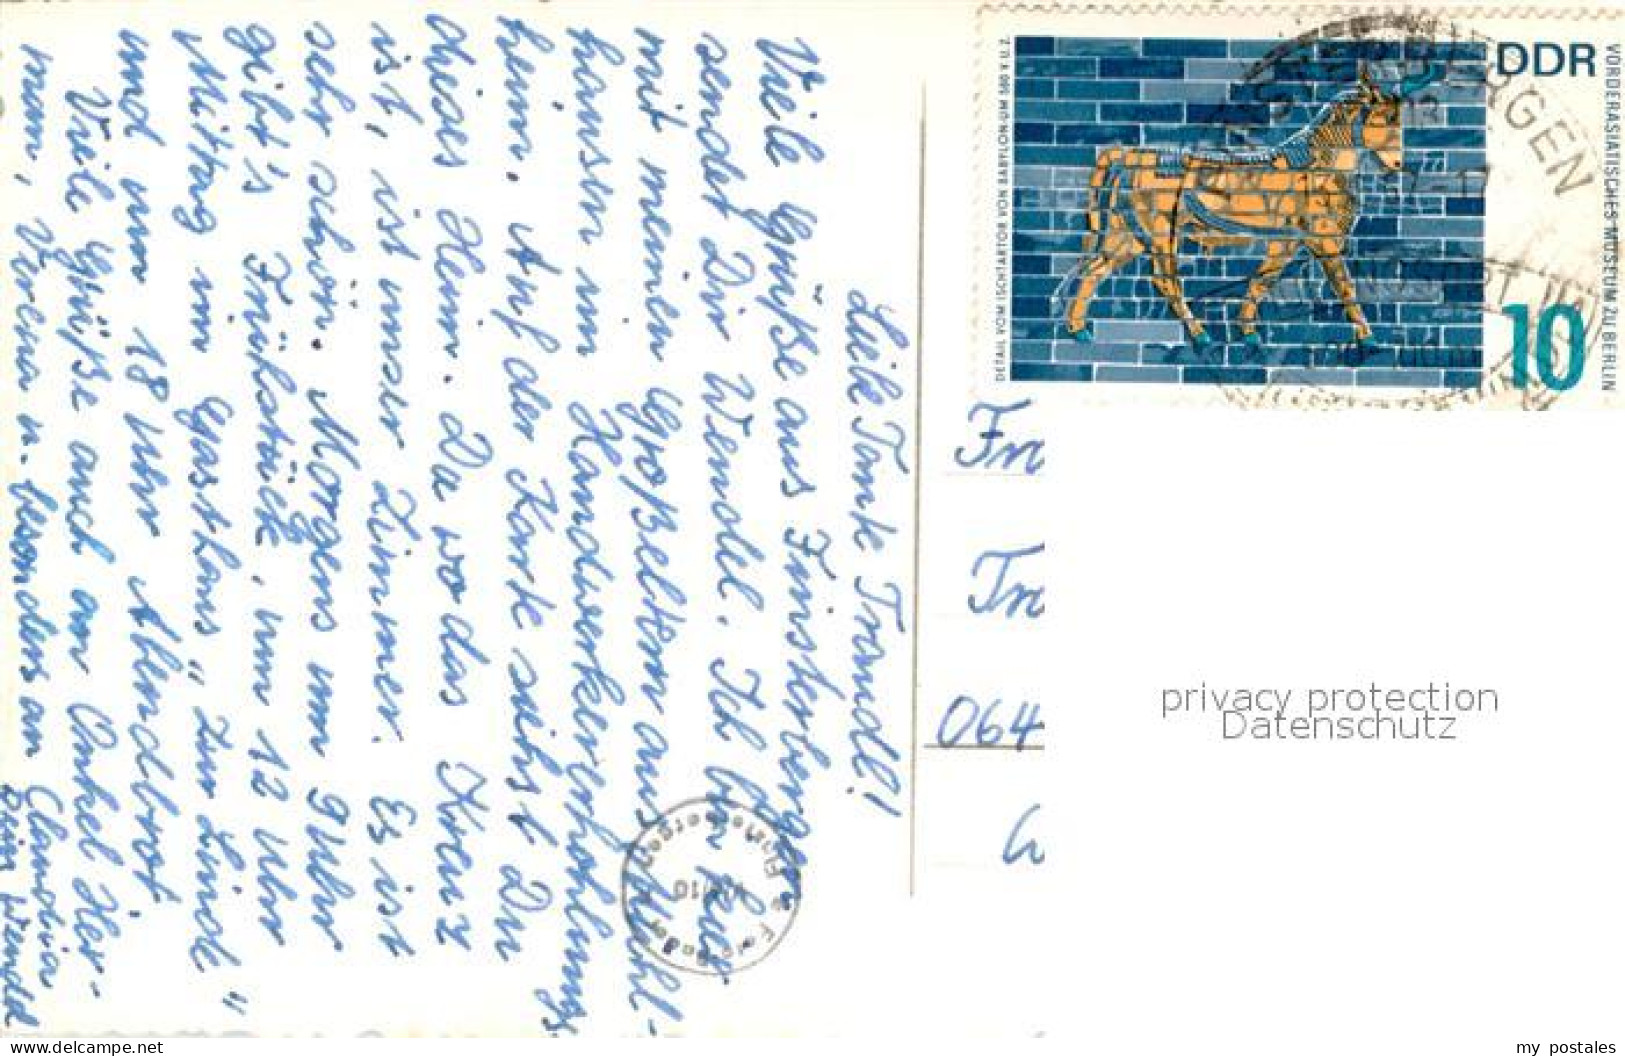 Liebe Tante Traudl!
Viele Grüße aus Finsterbergen
sendet Dir Wendel. Ich bin hier
mit meinen Großeltern aus Suhl-
hausen im Handwerkererholungs-
heim. Auf der Karte siehst Du
dieses Heim. Da wo das Kreuz
ist, ist unser Zimmer. Es ist
sehr schön. Morgens um 9 Uhr
gibt's Frühstück, um 12 Uhr
Mittag im Gasthaus "Zur Linde"
und um 18 Uhr Abendbrot.
Viele Grüße auch an Onkel Her-
mann, Verena u. besonders an Claudia
Dein Wendel
DDR
10
VORDERASIATISCHES MUSEUM ZU BERLIN
DETAIL VOM ISCHTARTOR VON BABYLON UM 580 V.U.Z.
Finsterbergen
Fr
Tr
064
G
privacy protection
Datenschutz
www.delcampe.net
my_postales